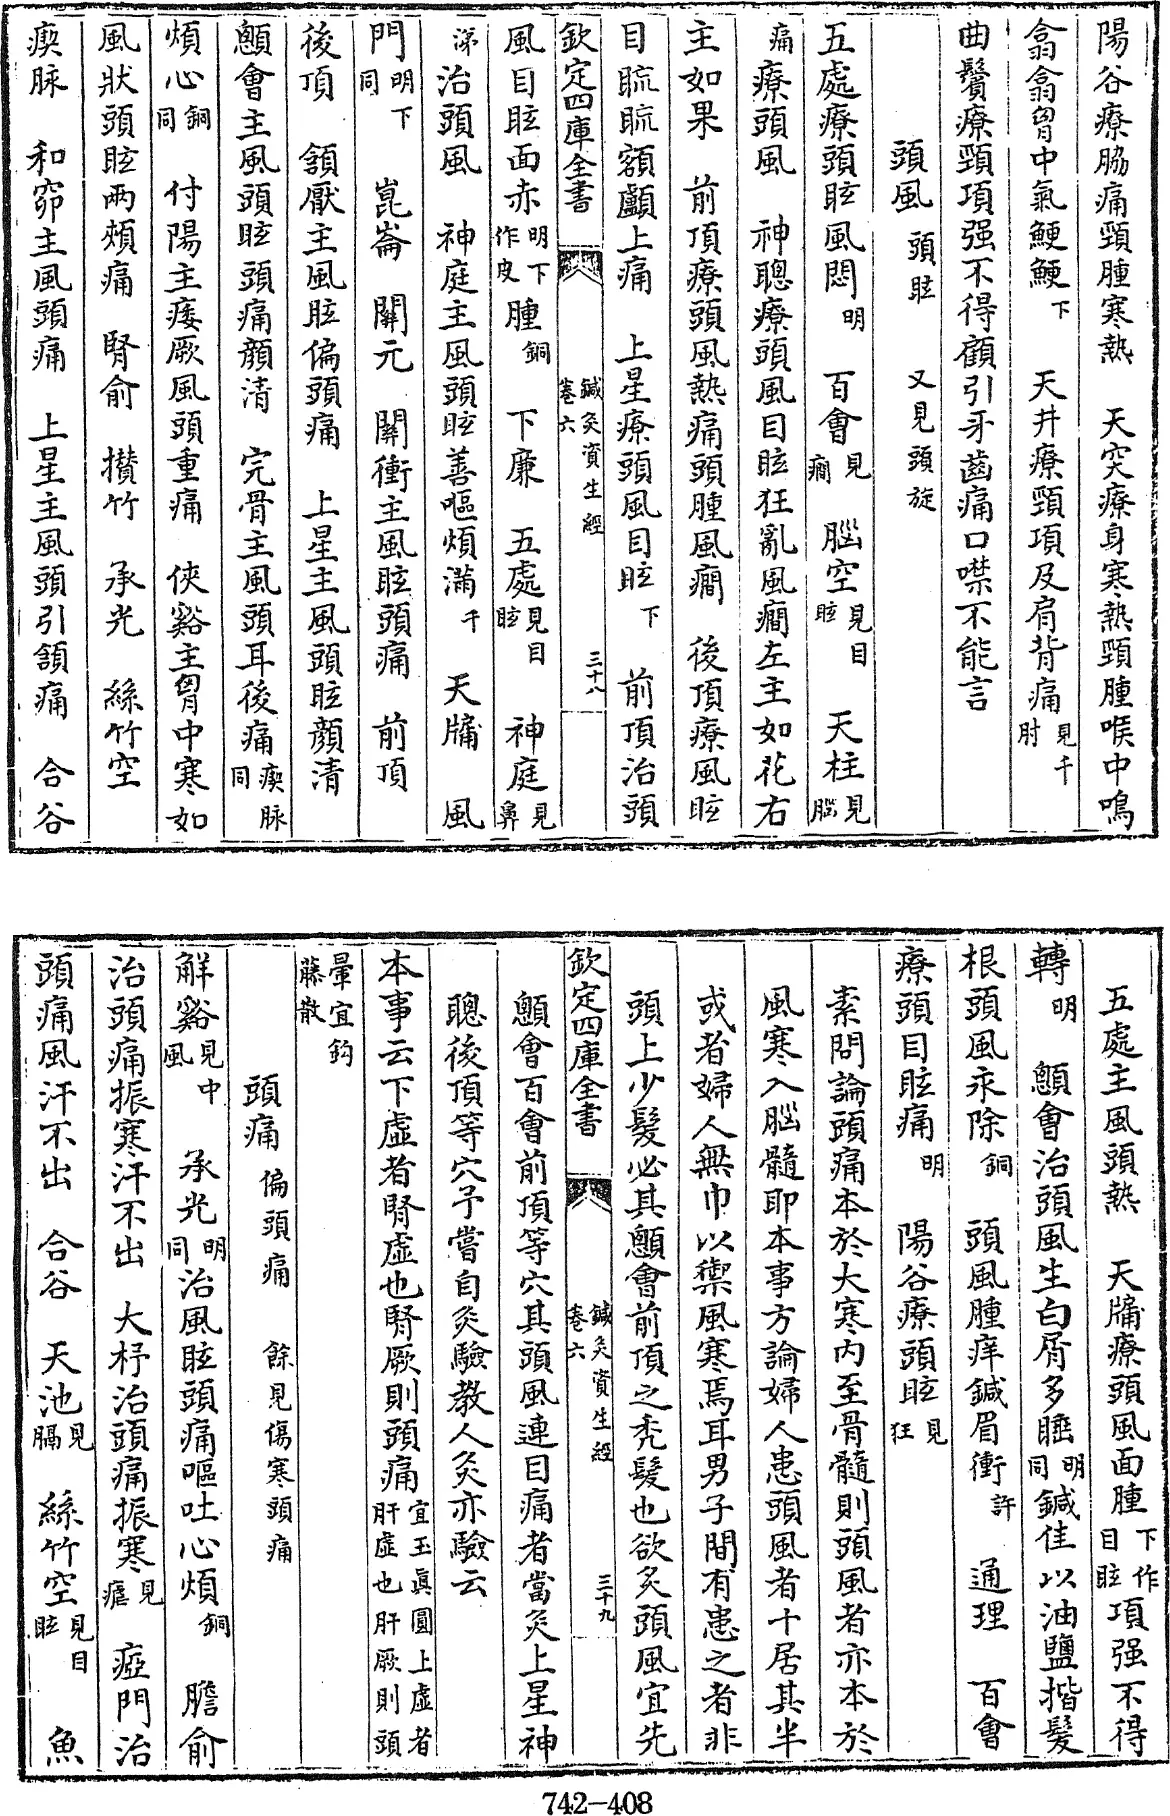 陽谷療脇痛頸腫寒熱　天突療身寒熱頸腫喉中鳴
翕翕胷中氣鯁鯁下　天井療頸項及肩背痛見千肘
曲鬢療頸項强不得顧引牙齒痛口噤不能言
頭風　頭眩　又見頭旋
五處療頭眩風悶明　百會見癇　腦空見目眩　天柱見腦
痛療頭風　神聰療頭風目眩狂亂風癇左主如花右
主如果　前頂療頭風熱痛頭腫風癇　後頂療風眩
目䀮䀮額顱上痛　上星療頭風目眩下　前頂治頭
欽定四庫全書　鍼灸資生經卷六　三十八
風目眩面赤明下作皮腫銅　下廉　五處見目眩　神庭見鼻
涕治頭風　神庭主風頭眩善嘔煩滿千　天牖　風
門明下同　崑崙　關元　關衝主風眩頭痛　前頂
後頂　頷厭主風眩偏頭痛　上星主風頭眩顔清
顖會主風頭眩頭痛顔清　完骨主風頭耳後痛瘈脉同
煩心銅同　付陽主痿厥風頭重痛　俠谿主胷中寒如
風狀頭眩兩頰痛　腎俞　攅竹　承光　絲竹空
瘈脉　和窌主風頭痛　上星主風頭引頷痛　合谷
五處主風頭熱　天牖療頭風面腫下作目眩項强不得
轉明　顖會治頭風生白屑多睡明同鍼佳以油鹽揩髮
根頭風永除銅　頭風腫痒鍼眉衝許　通理　百會
療頭目眩痛明　陽谷療頭眩見狂
素問論頭痛本於大寒內至骨髓則頭風者亦本於
風寒入腦髓耶本事方論婦人患頭風者十居其半
或者婦人無巾以禦風寒焉耳男子間有患之者非
頭上少髮必其顖會前頂之秃髮也欲灸頭風宜先
欽定四庫全書　鍼灸資生經卷六　三十九
顖會百會前頂等穴其頭風連目痛者當灸上星神
聰後頂等穴予嘗自灸驗教人灸亦驗云
本事云下虛者腎虛也腎厥則頭痛宜玉眞圓上虛者肝虛也肝厥則頭
暈宜鈎藤散
頭痛　偏頭痛　餘見傷寒頭痛
解谿見中風　承光明同治風眩頭痛嘔吐心煩銅　膽俞
治頭痛振寒汗不出　大杼治頭痛振寒見瘧　瘂門治
頭痛風汗不出　合谷　天池見膈　絲竹空見目眩　魚
742-408